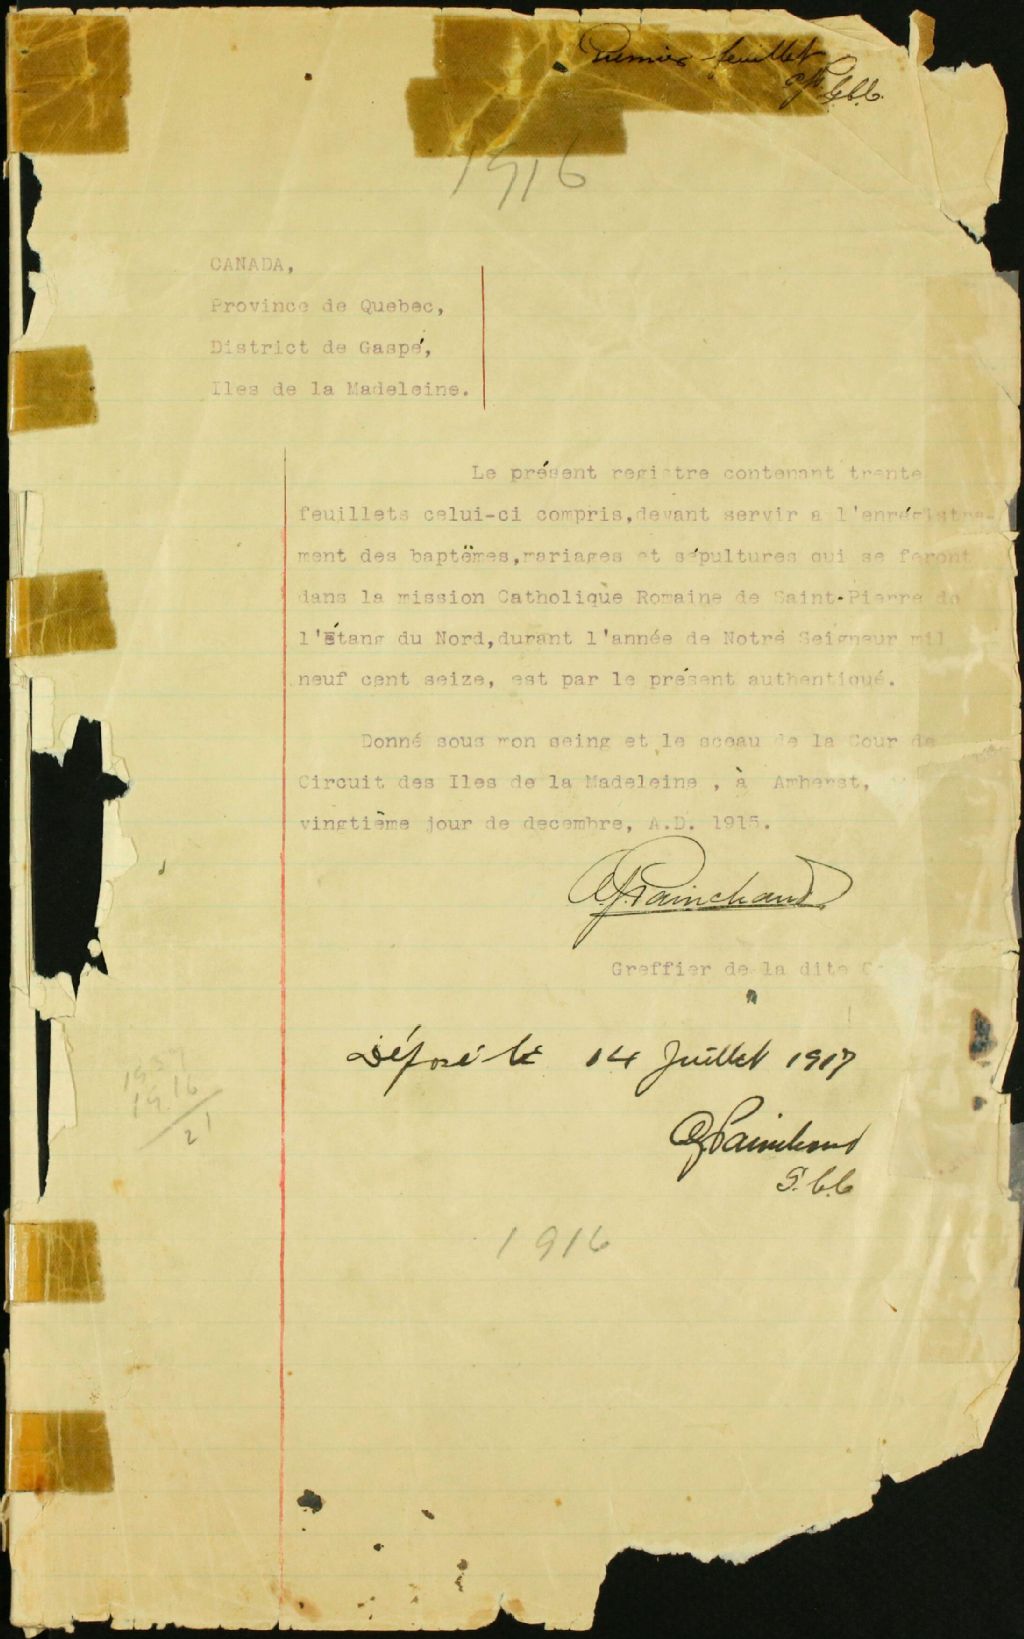 Premier feuillet
1916
CANADA,
Province de Quebec,
District de Gaspé,
Iles de la Madeleine.
Le présent registre contenant trente
feuillets celui-ci compris, devant servir a l'enrégistre-
ment des baptëmes, mariages et sépultures qui se feront
dans la mission Catholique Romaine de Saint-Pierre de
l'Étang du Nord, durant l'année de Notre Seigneur mil
neuf cent seize, est par le présent authentiqué.
Donné sous mon seing et le sceau de la Cour de
Circuit des Iles de la Madeleine , à Amherst,
vingtième jour de decembre, A.D. 1915.
A.J. Painchaud
Greffier de la dite
Déposé le 14 Juillet 1917
AJPainchaud
G.C.C
1916
21
1916